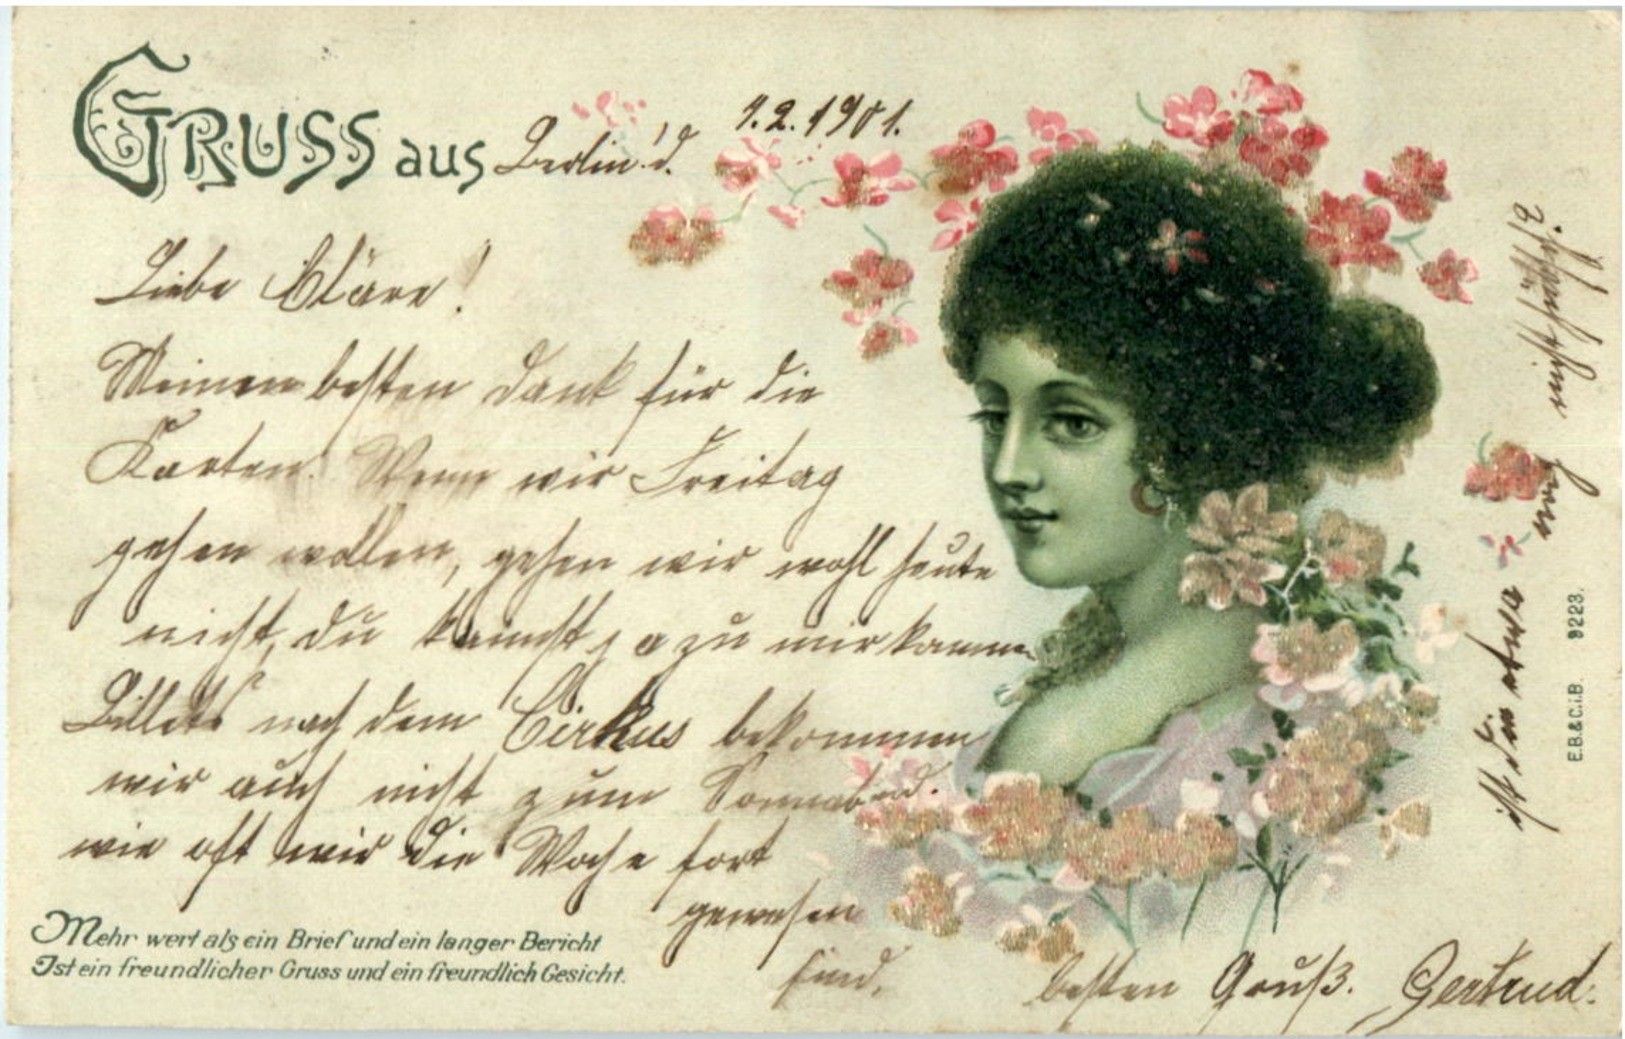 GRUSS aus Berlin, d. 1.2.1901.
Liebe Cläre!
Meinen besten Dank für die
Karten. Wenn wir Freitag
gehen wollen, gehen wir wohl heute
nicht, du kannst ja zu mir komm
Billets nach dem Cirkus bekommen
wir auch nicht zum Sonnabend.
wie oft wir die Woche fort
gewesen
sind,
ist dir etwa noch nicht
besten Gruß. Gertrud.
Mehr wert als ein Brief und ein langer Bericht
Ist ein freundlicher Gruss und ein freundlich Gesicht.
E.B.&C.i.B. 9223.